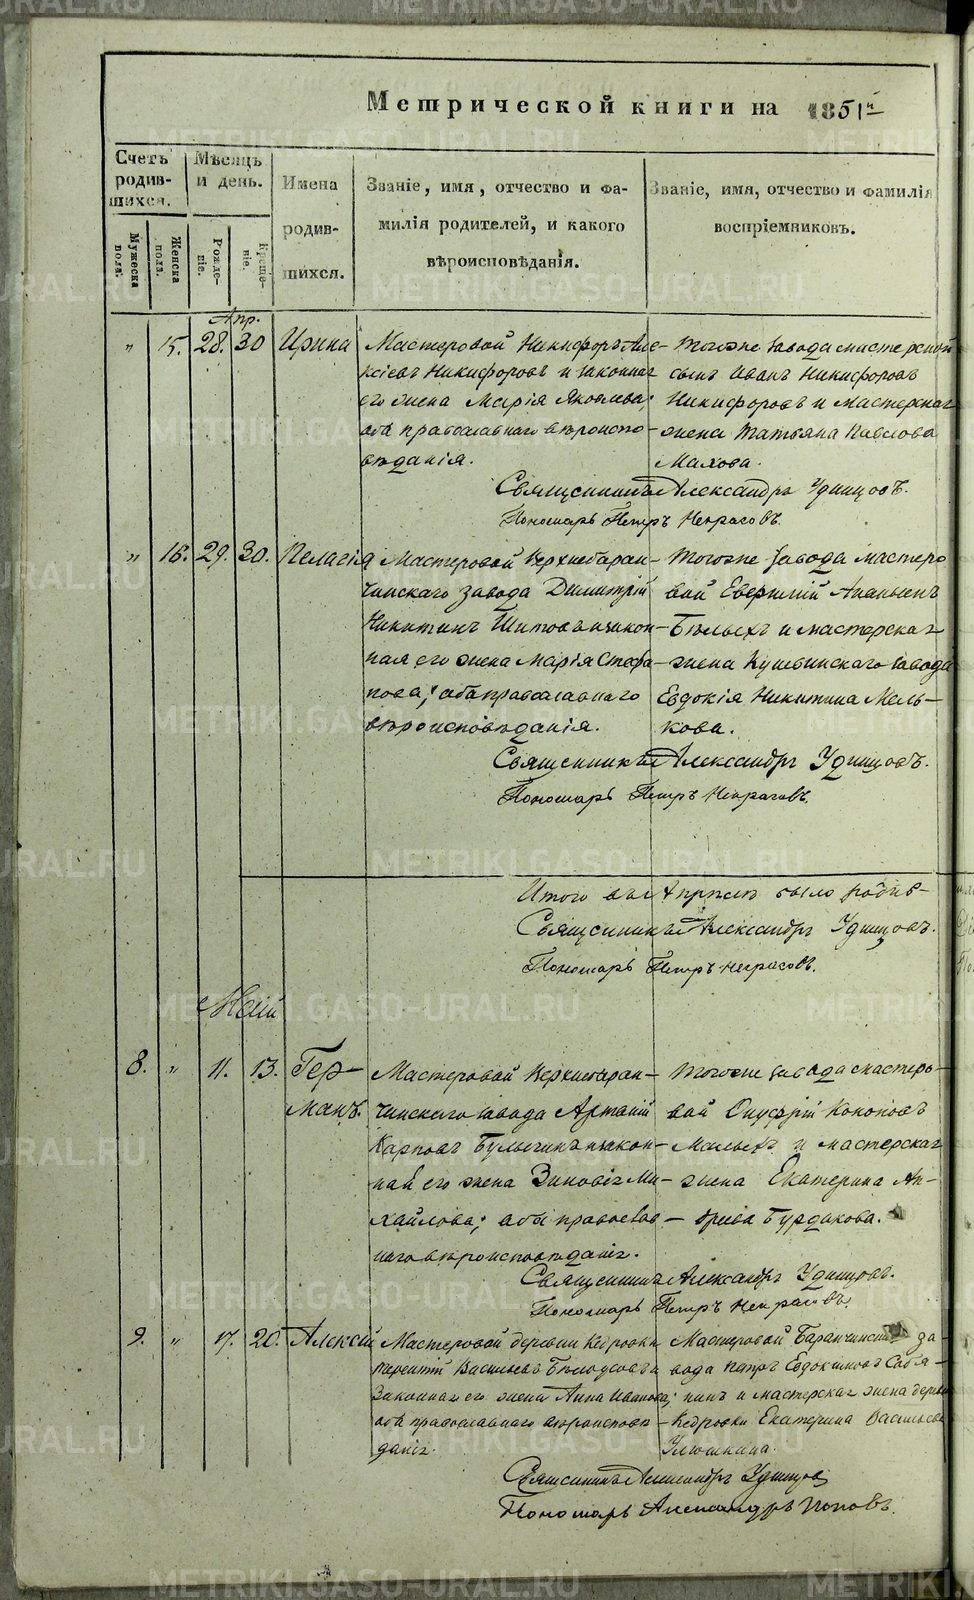 Метрической книги на 1851й
Счетъ родившихся.
Мужеска пола.
Женска пола.
Мѣсяцъ и день.
Рожденіе.
Крещеніе.
Имена родившихся.
Званіе, имя, отчество и фамилія родителей, и какого вѣроисповѣданія.
Званіе, имя, отчество и фамилія воспріемниковъ.
Апр.
" 15. 28. 30 Ирина
Мастеровой Никифоръ Алексіевъ Никифоровъ и законная
его жена Марія Яковлева;
оба православнаго вѣроисповѣданія.
Тогоже завода мастерской
сынъ Иванъ Никифоровъ
Никифоровъ и мастерская
жена Татьяна Павлова
Махова.
Священникъ Александръ Удинцовъ.
Пономарь Петръ Некрасовъ.
" 16. 29. 30. Пелагія
Мастеровой Верхнебаранчинскаго завода Димитрій
Никитинъ Шитовъ и законная его жена Марія Стефанова; оба православнаго
вѣроисповѣданія.
Тогоже завода мастеровой Ананьинъ
Бѣлыхъ и мастерская
жена Кушвинскаго завода
Евдокія Никитина Мелькова.
Священникъ Александръ Удинцовъ.
Пономарь Петръ Некрасовъ.
Итого въ Апрѣлѣ было родив-
Священникъ Александръ Удинцовъ.
Пономарь Петръ Некрасовъ.
Май
8. " 11. 13. Германъ.
Мастеровой Верхнебаранчинскаго завода Артемій
Карповъ Булыгинъ и законная его жена Зиновія Михайлова; оба православнаго вѣроисповѣданія.
Тогоже завода мастеровой Онуфрій Кононовъ
Малыхъ и мастерская
жена Екатерина Андреева Бурдакова.
Священникъ Александръ Удинцовъ.
Пономарь Петръ Некрасовъ.
9. " 17. 20. Алексій
Мастеровой деревни Кедровки
Терентій Васильевъ Бѣлоусовъ и
законная его жена Анна Иванова;
оба православнаго вѣроисповѣданія.
Мастеровой Баранчинскаго завода Петръ Евдокимовъ
и мастерская жена деревни
Кедровки Екатерина Васильева
Илюшкина.
Священникъ Александръ Удинцовъ
Пономарь Александръ Поповъ.
METRIKI.GASO-URAL.RU